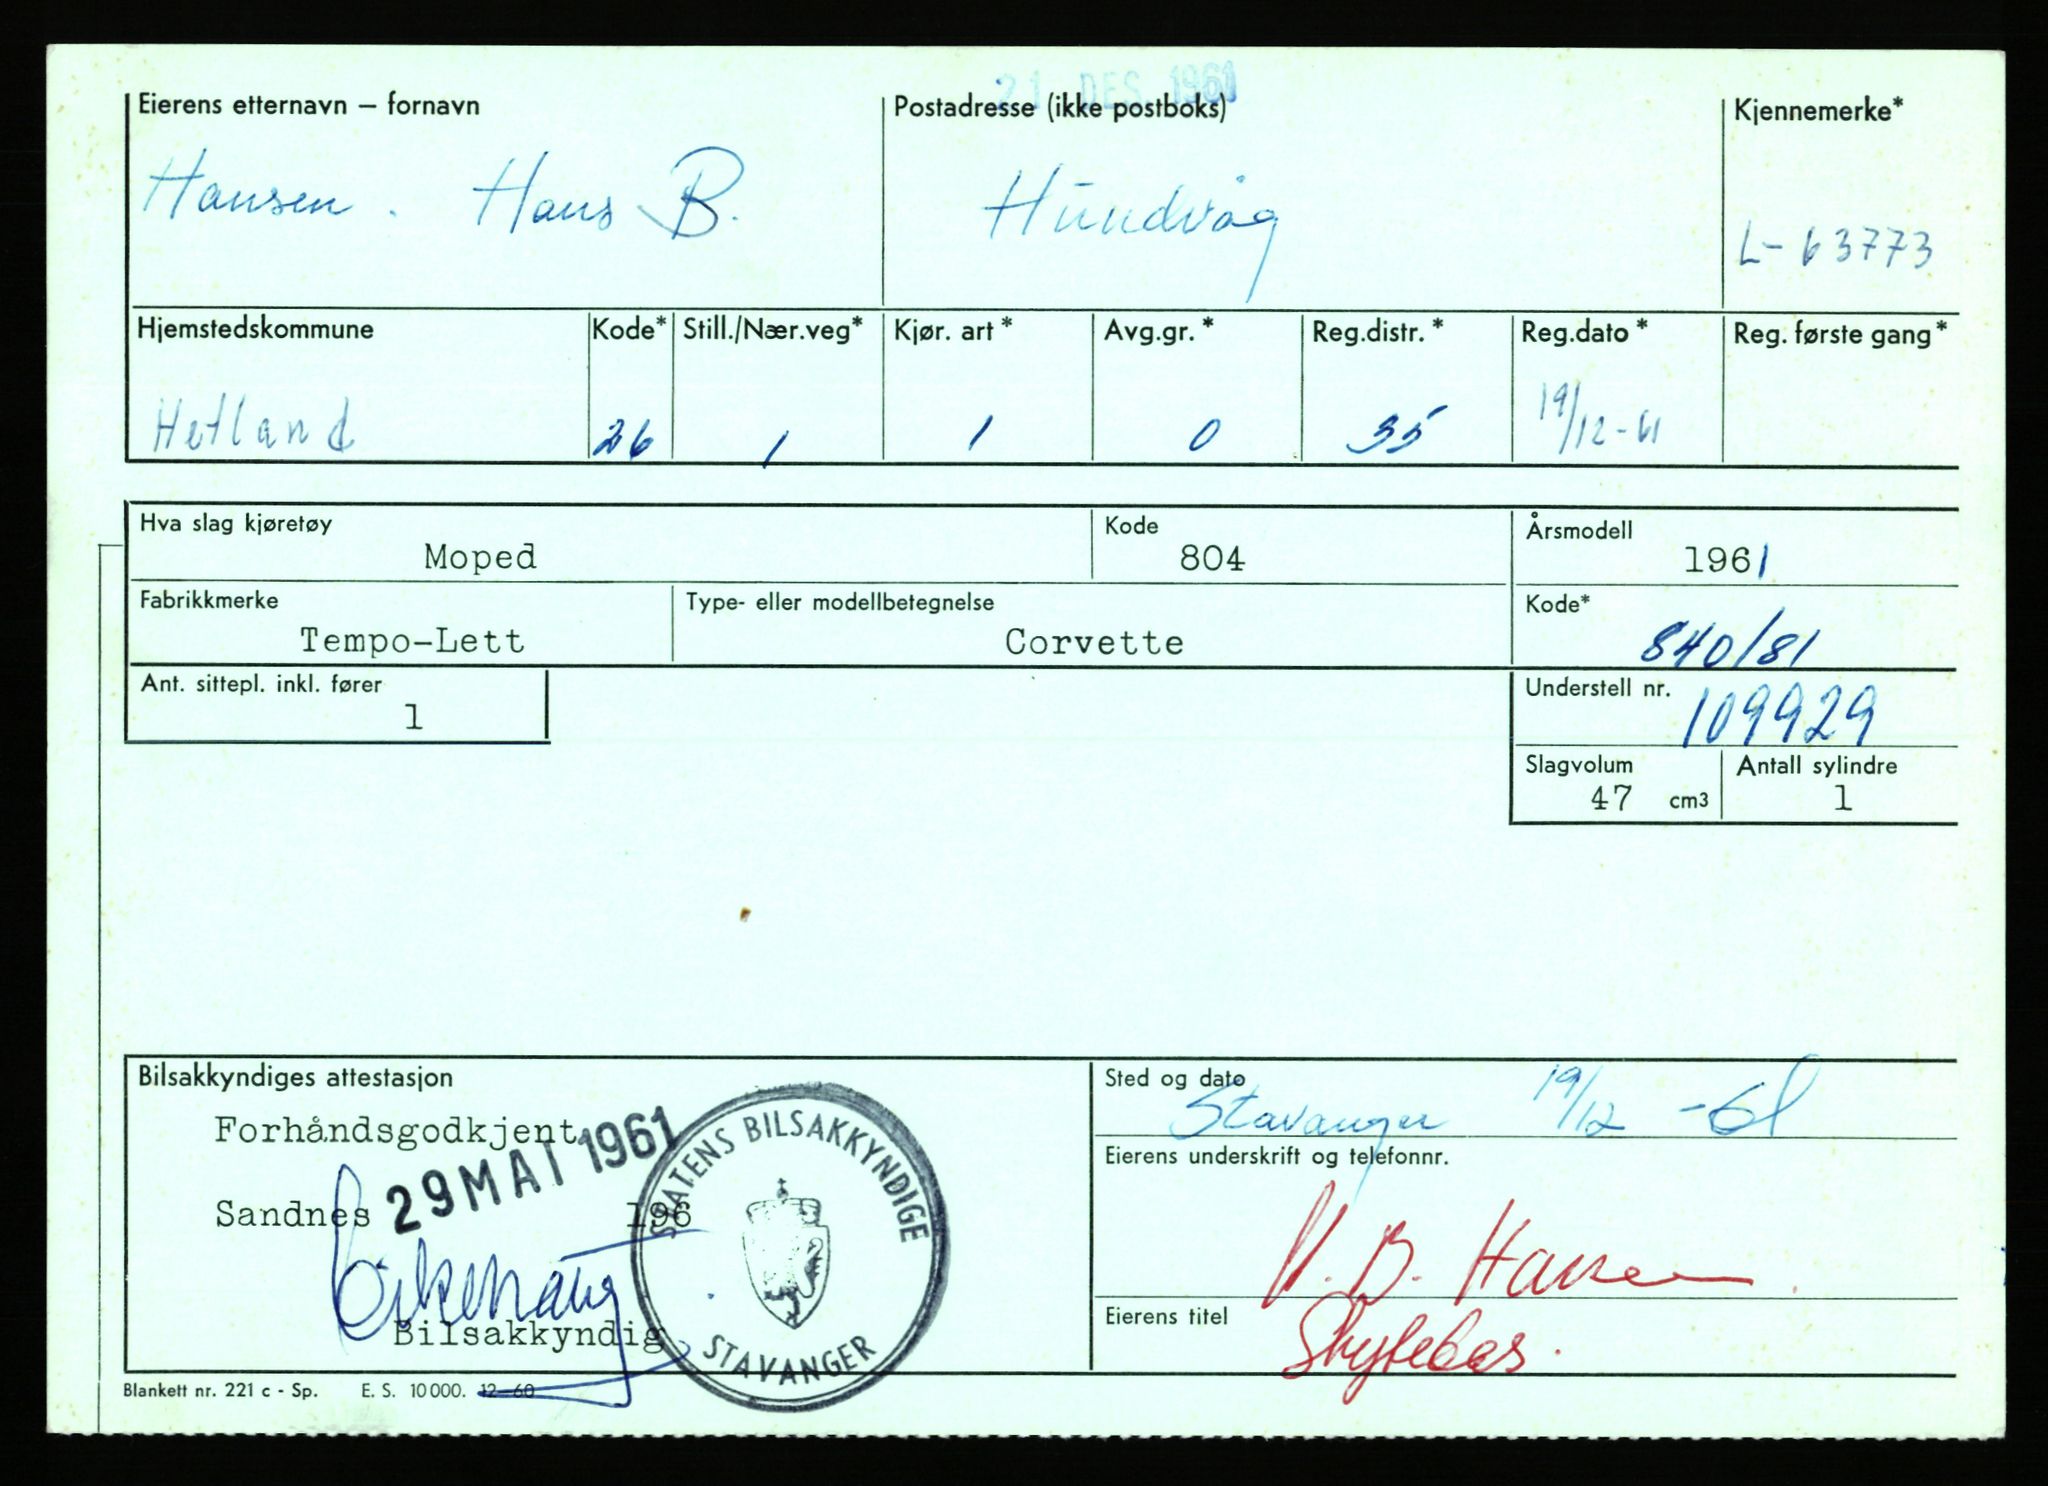 21 DES 1961
Eierens etternavn – fornavn Postadresse (ikke postboks) Kjennemerke*
Hansen. Hans B. Hundvåg L-63773
Hjemstedskommune Kode* Still./Nær.veg* Kjør. art* Avg.gr.* Reg.distr.* Reg.dato* Reg. første gang*
Hetland 26 1 1 0 35 19/12-61
Hva slag kjøretøy Kode Årsmodell
Moped 804 1961
Fabrikkmerke Type- eller modellbetegnelse Kode*
Tempo-Lett Corvette 840/81
Ant. sittepl. inkl. fører Understell nr.
1 109929
Slagvolum Antall sylindre
47 cm3 1
Bilsakkyndiges attestasjon Sted og dato
Stavanger 19/12 -61
Forhåndsgodkjent
Eierens underskrift og telefonnr.
29 MAI 1961
Sandnes 196
H. B. Hansen
Bilsakkyndig
STATENS BILSAKKYNDIGE
STAVANGER
Eierens titel
Blankett nr. 221 c - Sp. E. S. 10 000. 12-60